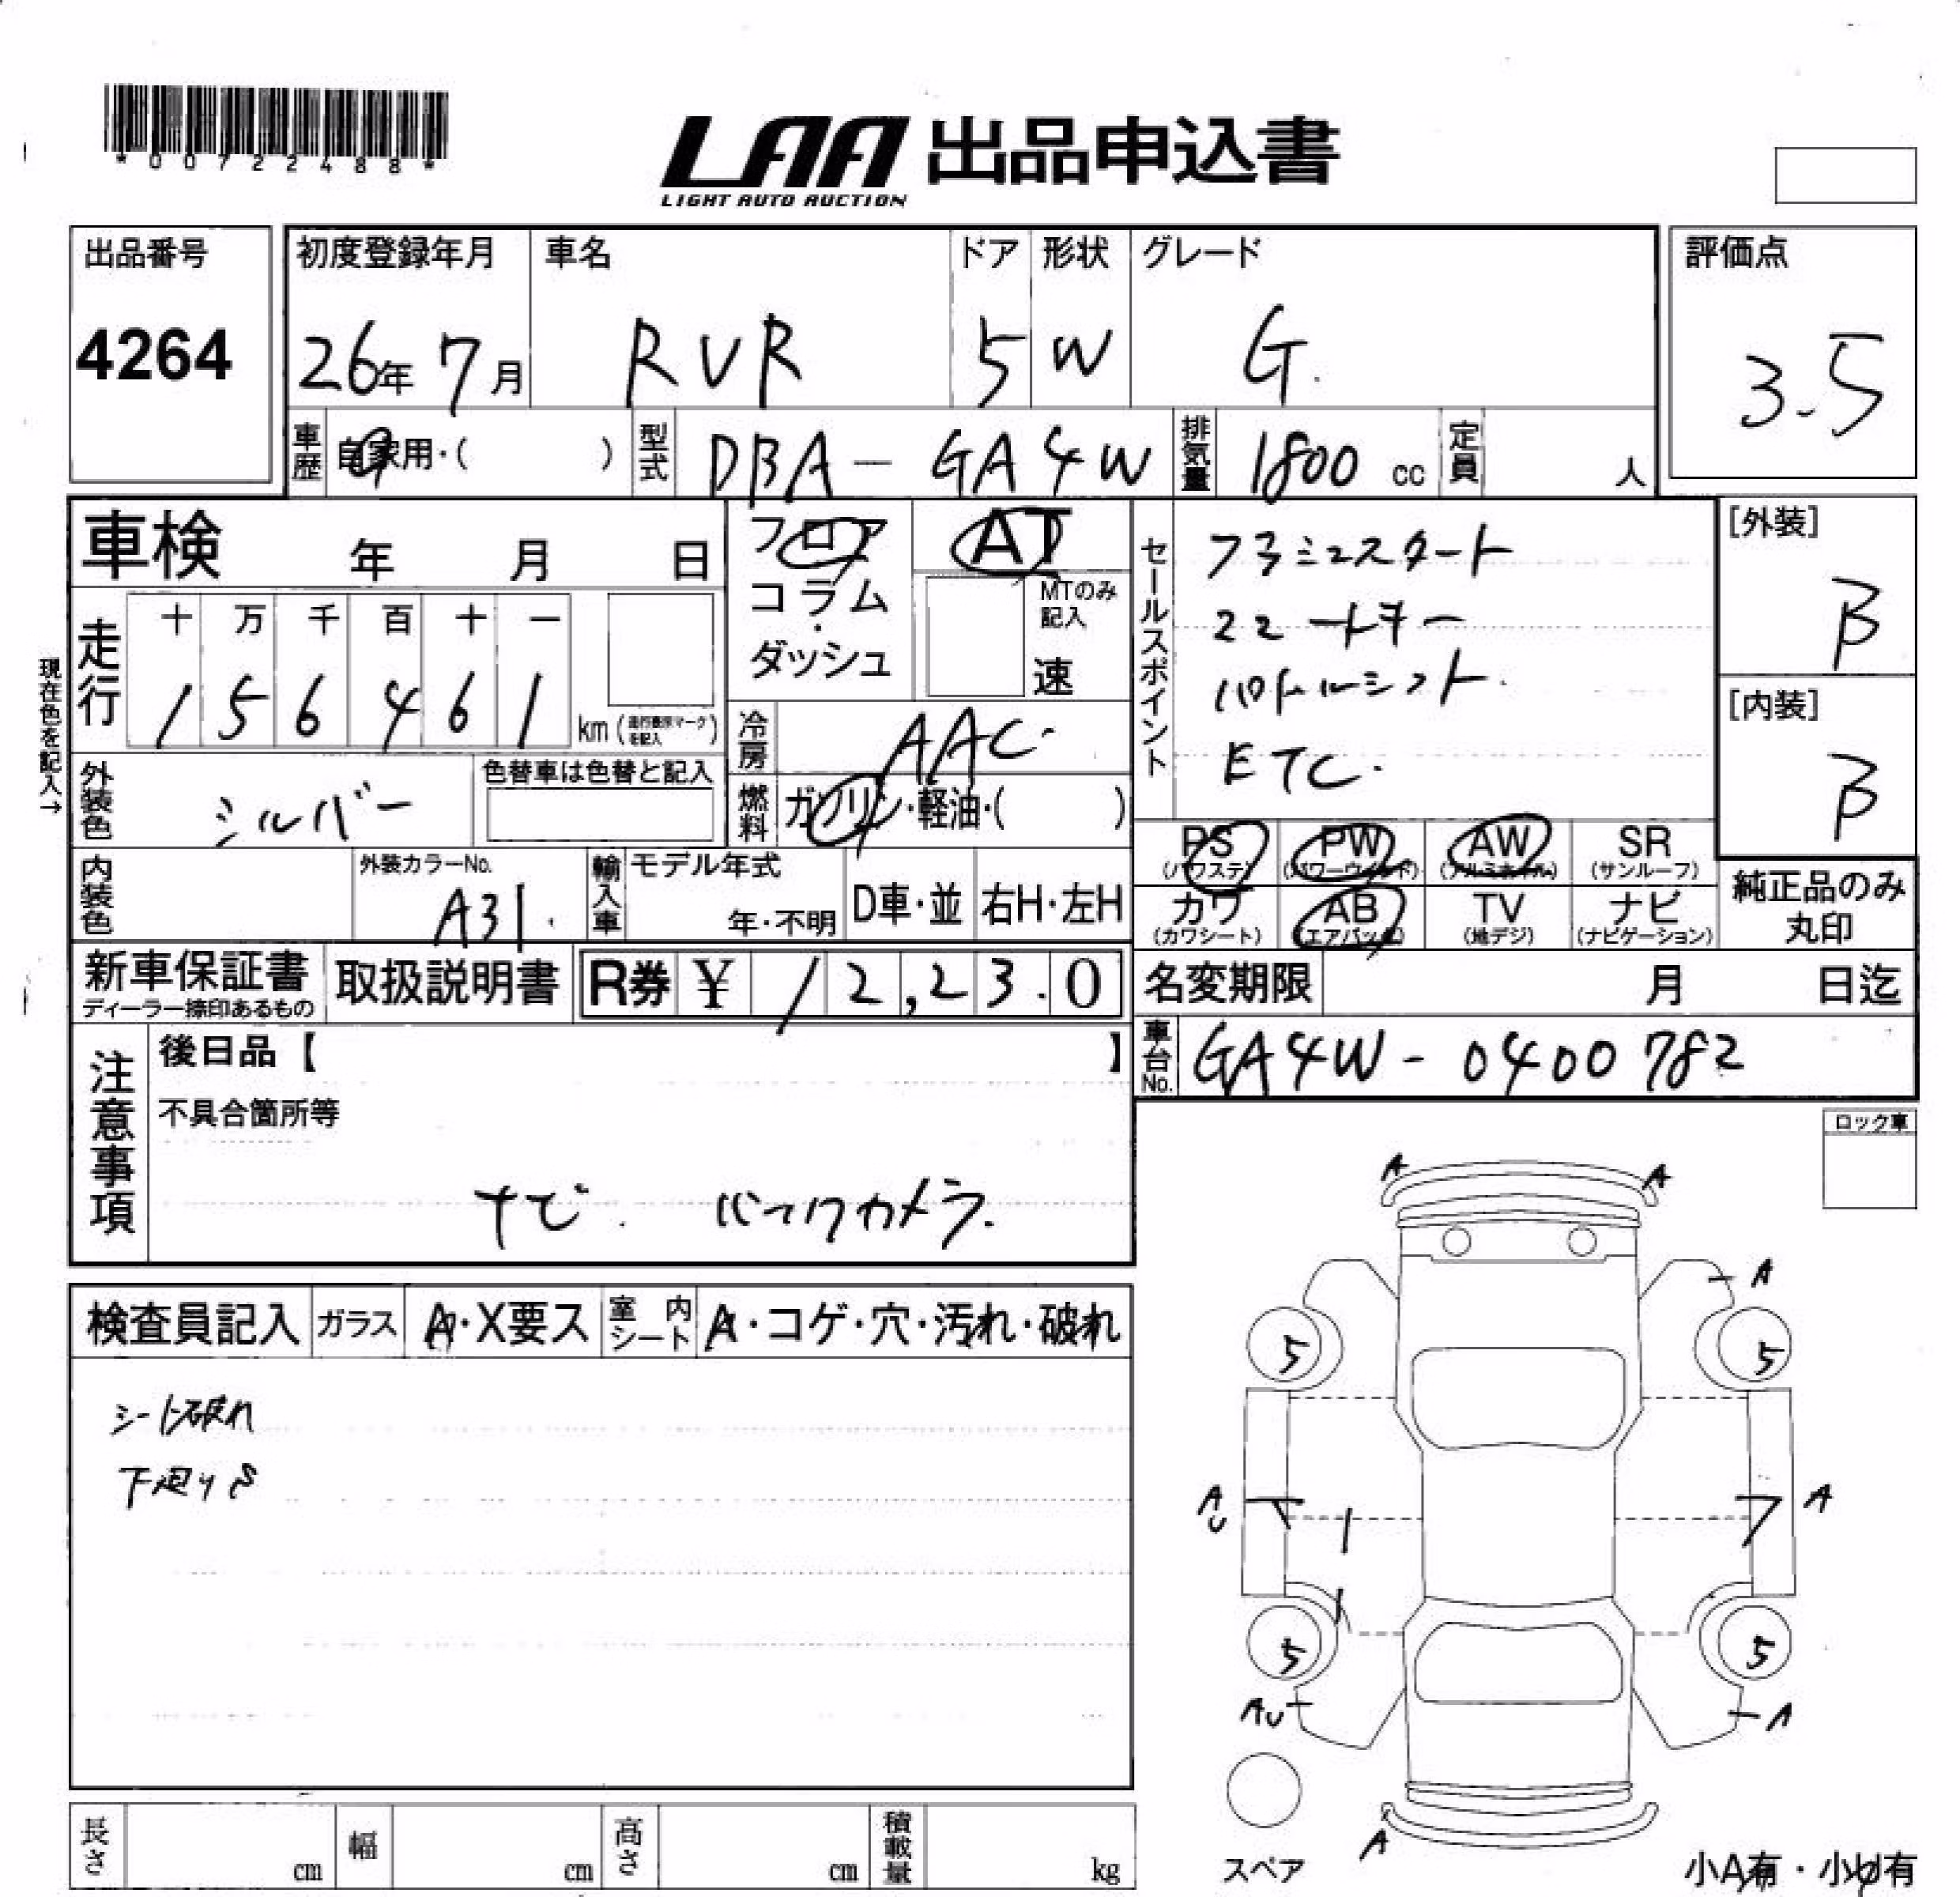 *00722488*
LAA 出品申込書
LIGHT AUTO AUCTION
出品番号
4264
初度登録年月
26年 7月
車名
RVR
ドア
5
形状
W
グレード
G.
評価点
3.5
車歴
自家用・( )
型式
DBA-GA4W
排気量
1800 cc
定員
人
車検 年 月 日
フロア
コラム
・
ダッシュ
AT
MTのみ
記入
速
セールスポイント
プッシュスタート
スマートキー
パドルシフト
ETC.
[外装]
B
[内装]
B
現在色を記入→
走行
十 万 千 百 十 一
1 5 6 4 6 1
km (走行表示マーク
を記入)
冷房
AAC.
外装色
シルバー
色替車は色替と記入
燃料
ガソリン・軽油・( )
PS
(パワステ)
PW
(パワーウィンド)
AW
(アルミホイル)
SR
(サンルーフ)
カワ
(カワシート)
AB
(エアバック)
TV
(地デジ)
ナビ
(ナビゲーション)
純正品のみ
丸印
内装色
外装カラーNo.
A31.
輸入車
モデル年式
年・不明
D車・並
右H・左H
新車保証書
ディーラー捺印あるもの
取扱説明書
R券 ¥ 12,23.0
名変期限 月 日迄
車台No.
GA4W-0400782
注意事項
後日品【 】
不具合箇所等
ナビ. バックカメラ.
ロック車
検査員記入
ガラス
A・X要ス
室内シート
A・コゲ・穴・汚れ・破れ
シート破れ
下廻りS
A
A
A
5
5
A
U
A
5
5
AU
A
スペア
A
小A有・小U有
長さ cm
幅 cm
高さ cm
積載量 kg